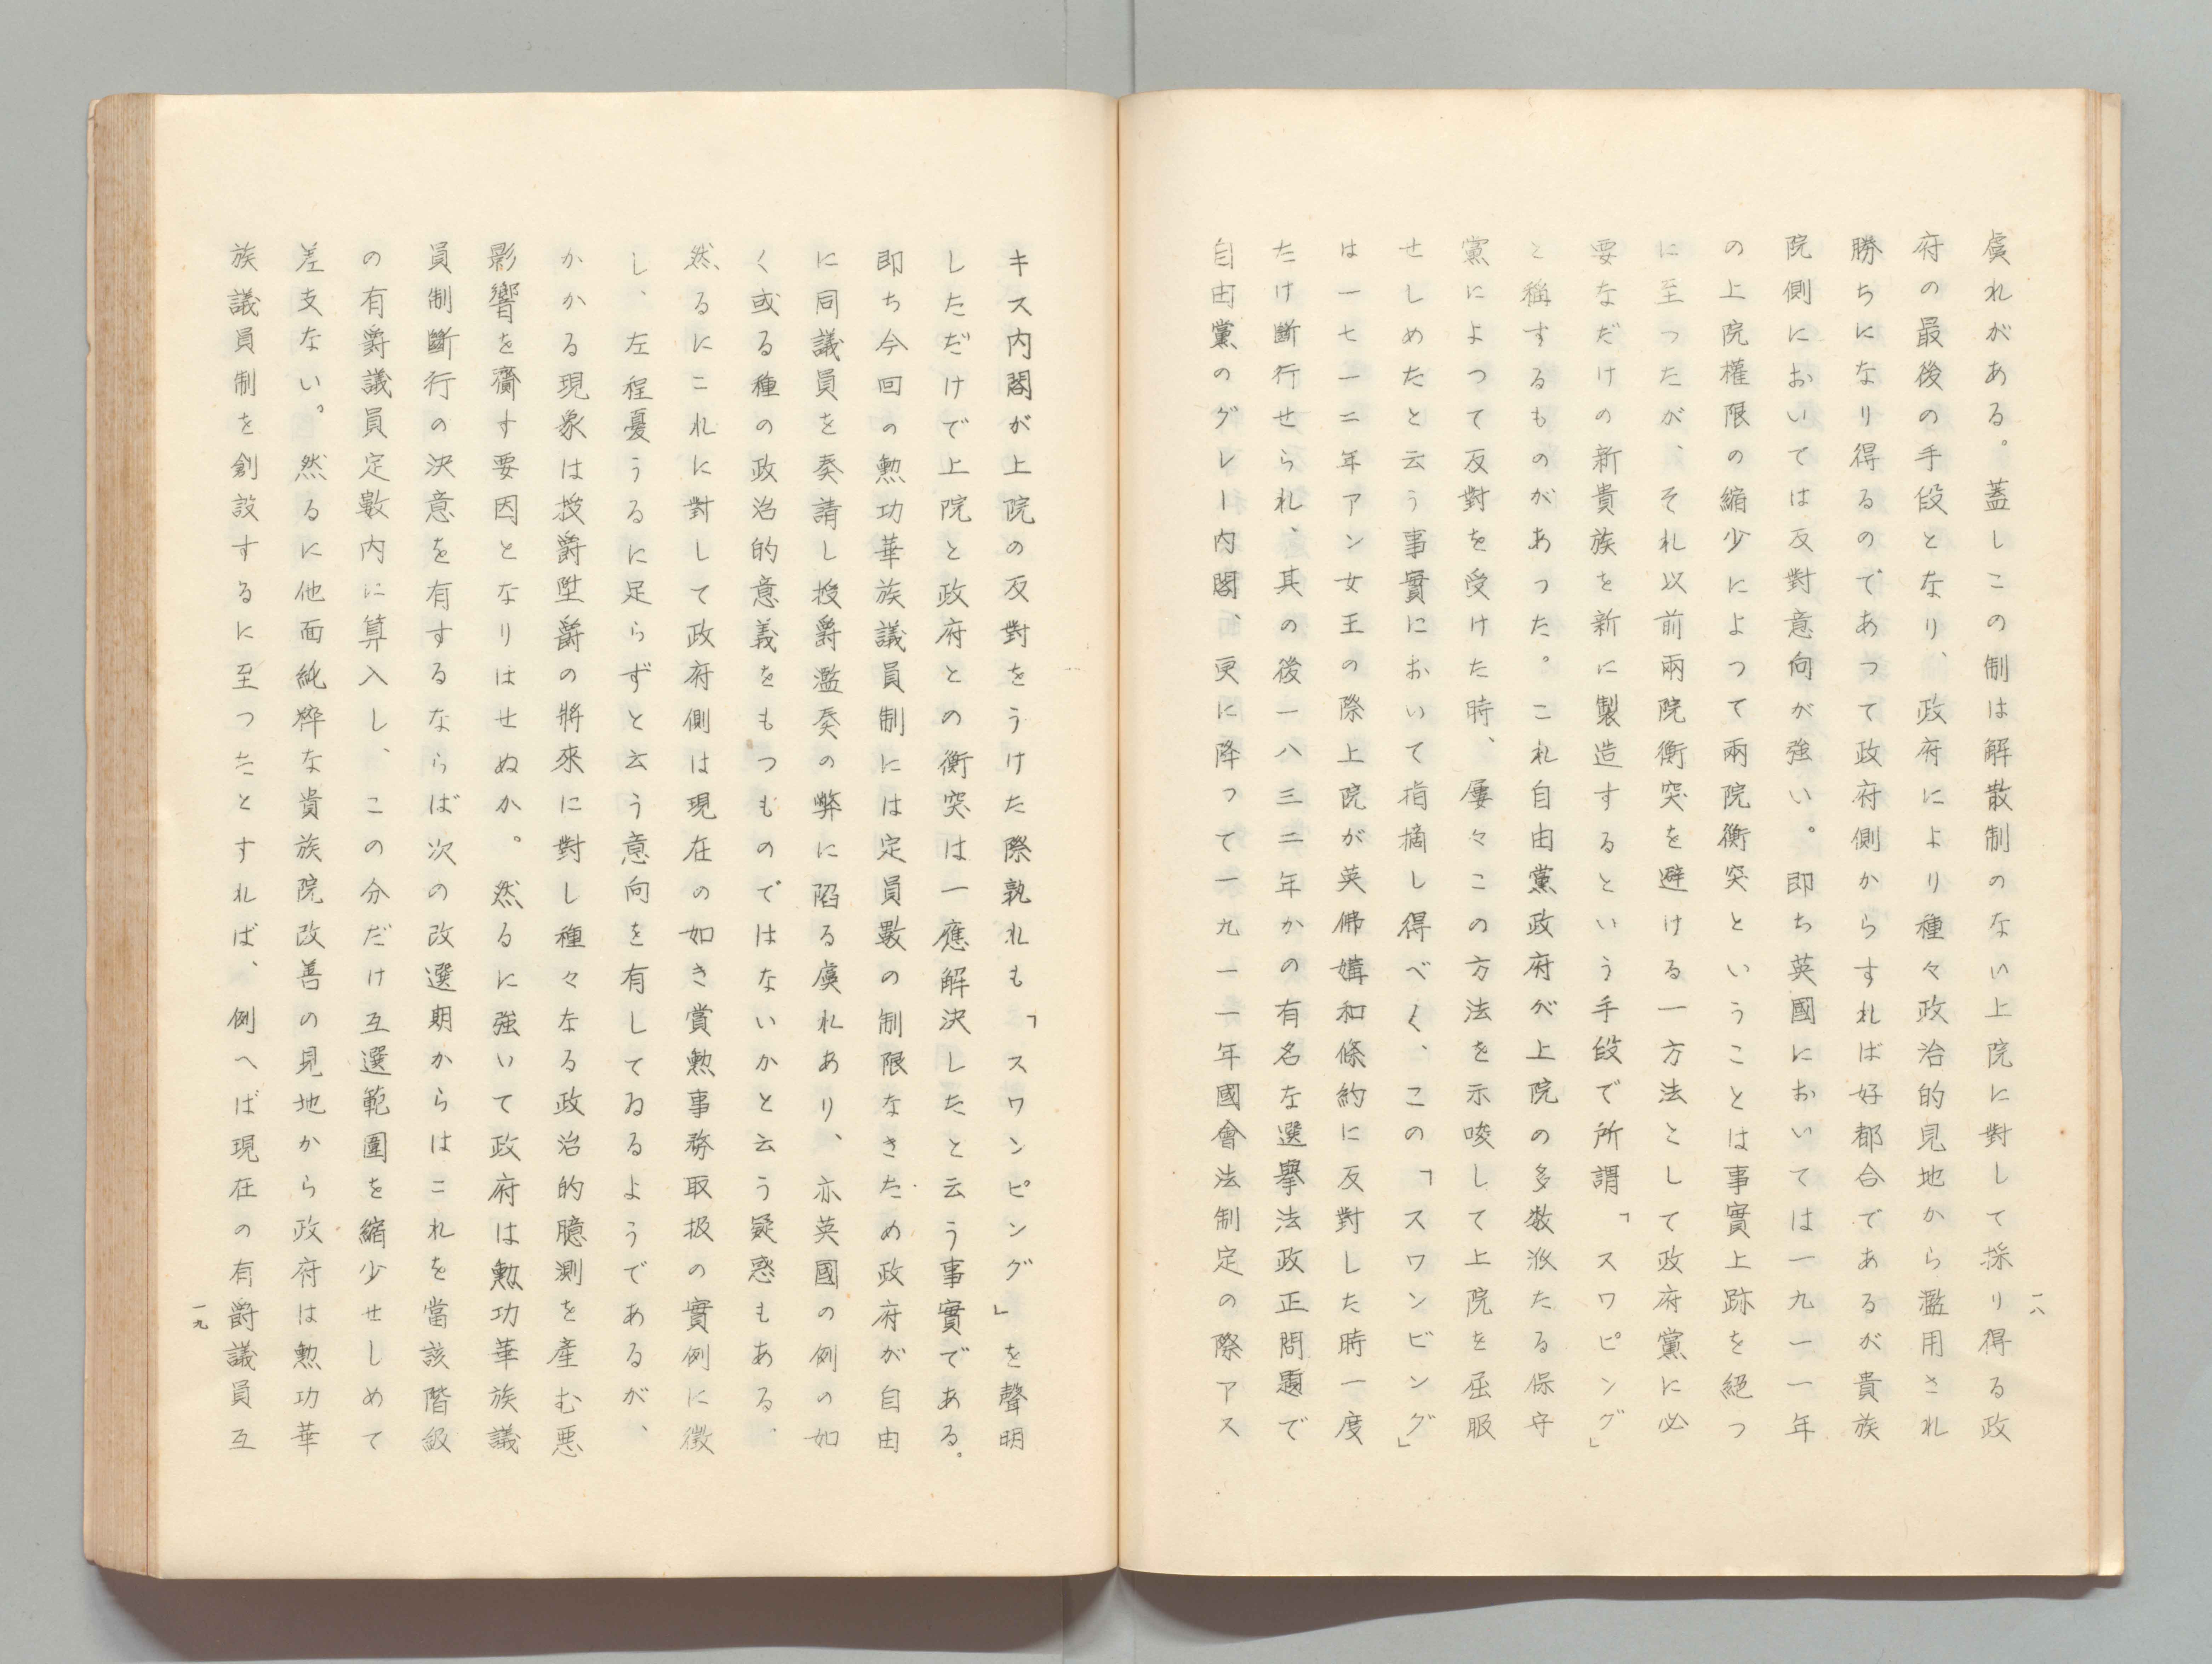 虞れがある。蓋しこの制は解散制のない上院に對して採り得る政
府の最後の手段となり、政府により種々政治的見地から濫用され
勝ちになり得るのであつて政府側からすれば好都合であるが貴族
院側においては反對意向が強い。即ち英國においては一九一一年
の上院權限の縮少によつて兩院衝突ということは事實上跡を絶つ
に至つたが、それ以前兩院衝突を避ける一方法として政府黨に必
要なだけの新貴族を新に製造するという手段で所謂「スワピング」
と稱するものがあつた。これ自由黨政府が上院の多数派たる保守
黨によつて反對を受けた時、屡々この方法を示唆して上院を屈服
せしめたと云う事實において指摘し得べく、この「スワンピング」
は一七一二年アン女王の際上院が英佛媾和條約に反對した時一度
たけ断行せられ、其の後一八三二年かの有名な選擧法政正問題で
自由黨のグレー内閣、更に降つて一九一一年國會法制定の際アス
一八
キス内閣が上院の反對をうけた際孰れも「スワンピング」を聲明
しただけで上院と政府との衝突は一應解決したと云う事實である。
即ち今回の勲功華族議員制には定員數の制限なきため政府が自由
に同議員を奏請し授爵濫奏の弊に陷る虞れあり、亦英國の例の如
く或る種の政治的意義をもつものではないかと云う疑惑もある、
然るにこれに對して政府側は現在の如き賞勲事務取扱の實例に徴
し、左程憂うるに足らずと云う意向を有してゐるようであるが、
かかる現象は授爵陞爵の將來に對し種々なる政治的臆測を産む悪
影響を齎す要因となりはせぬか。然るに強いて政府は勲功華族議
員制斷行の決意を有するならば次の改選期からはこれを當該階級
の有爵議員定數内に算入し、この分だけ互選範圍を縮少せしめて
差支ない。然るに他面純粹な貴族院改善の見地から政府は勲功華
族議員制を創設するに至つたとすれば、例へば現在の有爵議員互
一九